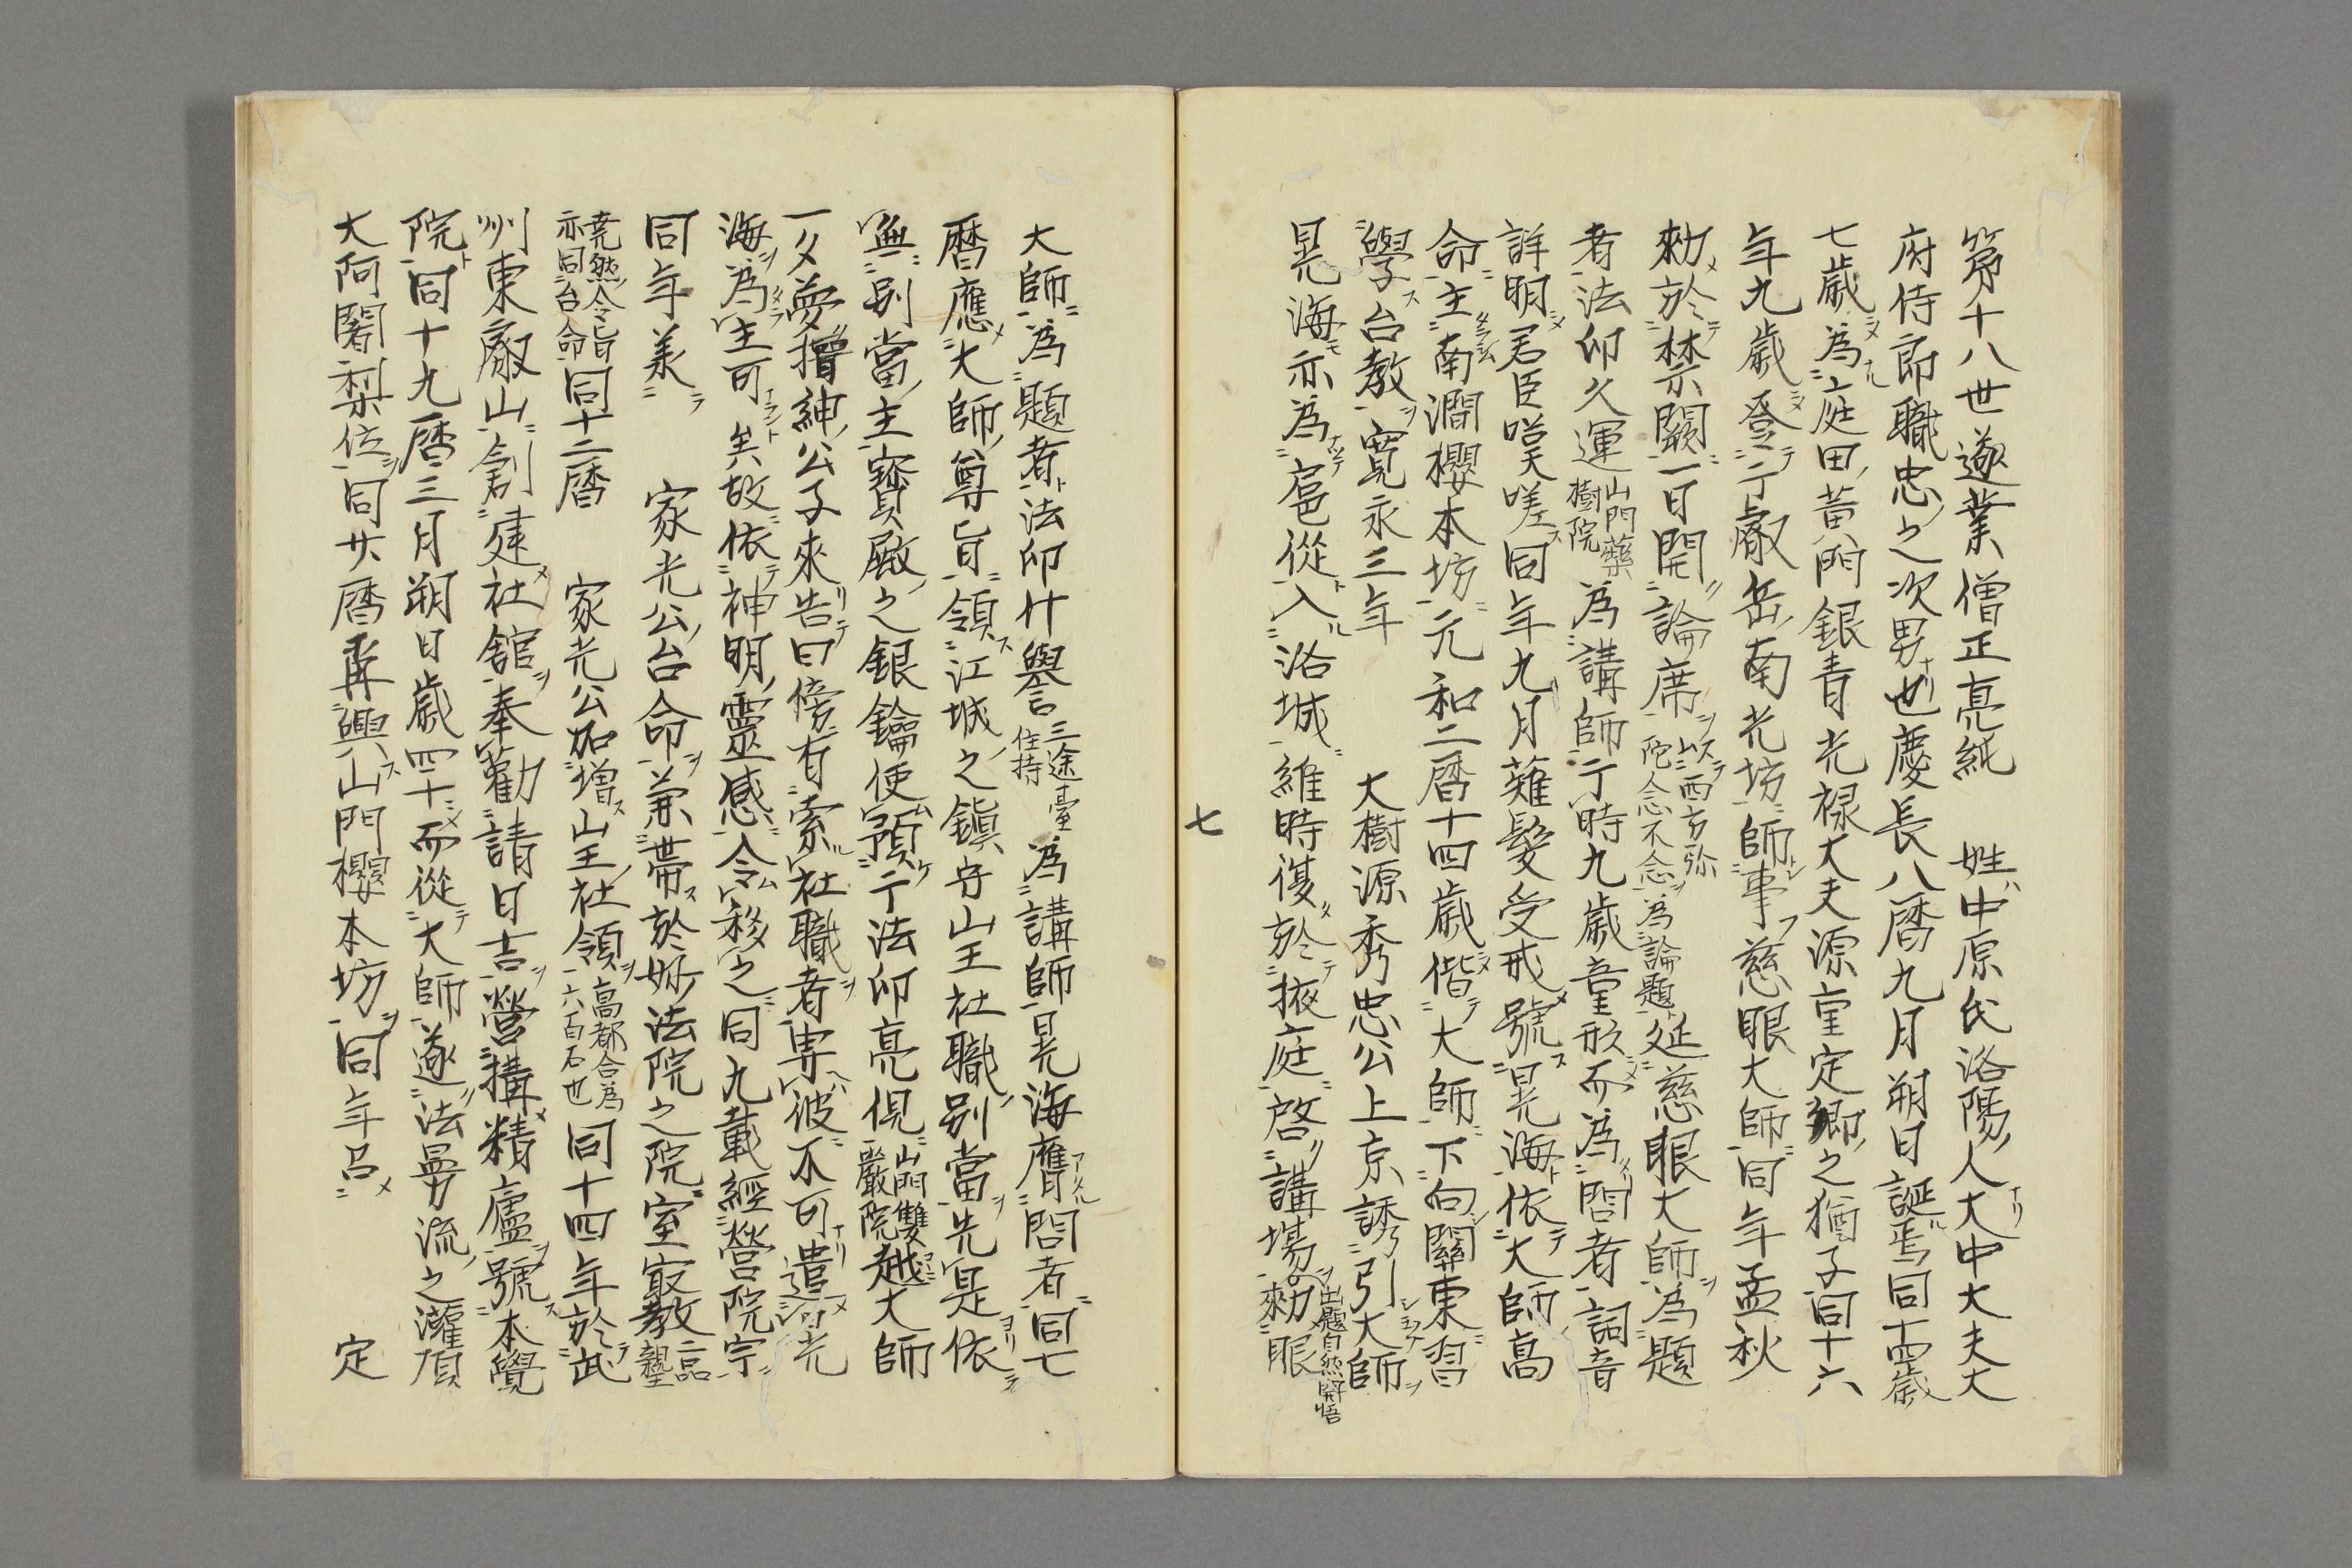 第十八世遂業僧正亮純　姓ハ中原氏洛陽ノ人大中大夫大
府侍郎職忠ノ之次男也慶長八暦九月朔日誕焉同十四歳
七歳ニシメ為庭田ノ黄門銀青光禄大夫源重定卿ノ之猶子同十六
年九歳ニシテ登于叡岳南光坊師事慈眼大師同年孟秋
勅メ於禁闕一日開論席ヲ山ニ西方弥陀念不念ヲ為論題ト延慈眼大師ヲ為題
者法印久運山門薬樹院為講師于時九歳童形ニシメ而為問者詞音
詳明ニシメ君臣嘆嗟ス同年九月薙髪受戒メ號ス晃海ト依テ大師高
命ニ主ラシム南澗櫻本坊元和二暦十四歳ニシメ偕テ大師ニ下向シ關東習
學ス台教ヲ寛永三年　大樹源秀忠公上京誘引大師ヲ
晃海モ亦為扈從ト入ル洛城ニ維時復メ於テ掖庭ニ啓講場ヲ出題自然開悟勅眼
七
大師為題者ト法印什譽三途臺住持為講師晃海膺問者ニ同七
暦應大師ノ尊旨ニ領ス江城ノ之鎮守山王社職ノ別當ヲ先是依
無別當ノ主寳殿ノ之銀鑰使ム預ケ于法印亮俔山門雙嚴院越大師
一夕夢ラク搢紳ノ公子來リ告テ曰傍有索ル社職者ヲ専彼ハ不可遣晃
海ヲ為タラ主可矣故依テ神明ノ靈感令ム移之同九載經營院宇
同年羕テ　家光公ノ台命ヲ兼帯ス於妙法院之院室㝡教二品親王
尭然ノ令旨亦同台命同十二暦　家光公加増ス山王ノ社領ヲ高都合為六百石也同十四年於テ武
州東叡山創建メ社舘ヲ奉勸請日吉ヲ營構メ精廬ヲ號ス本覺
院ト同十九暦三月朔日歳四十ニシメ而從テ大師遂法曼流ノ之灌頂
大阿闍梨位ヲ同廿暦再興ス山門櫻本坊ヲ同年呂メ　定